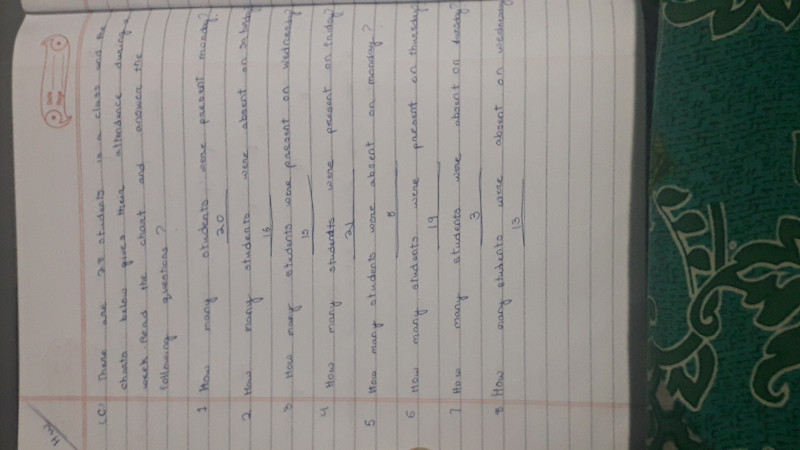 H.W
(C) There are 28 students in a class and the
charts below gives their attendance during a
week Read the chart and answer the
following questions ?
1 How many students were present monday?
20
2 How many students were absent on
16
3 How many students were present on wednesday
15
4 How many students were present on friday?
21
5 How many students were absent on monday ?
8
6 How many students were present on thursday?
19
7 How many students were absent on tuesday?
3
8 How many students were absent on wednesday
13